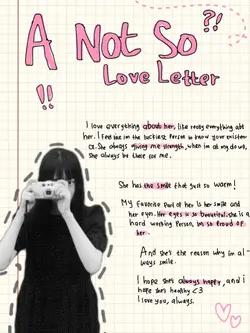 A Not So
Love Letter
?!
!!
I love everything about her, like really everything abt
her. I feel like im the luckiest person to know your existen
ce. She always giving me strength, when im all my down,
She always be there for me.
She has the smile that just so warm!
My favorite part of her is her smile and
her eyes. Her eyes is so beautiful. she is a
hard working person, im so proud of
her.
And she's the reason why im al-
ways smile.
I hope she's always happy, and i
hope she's healthy <3
I love you, always.